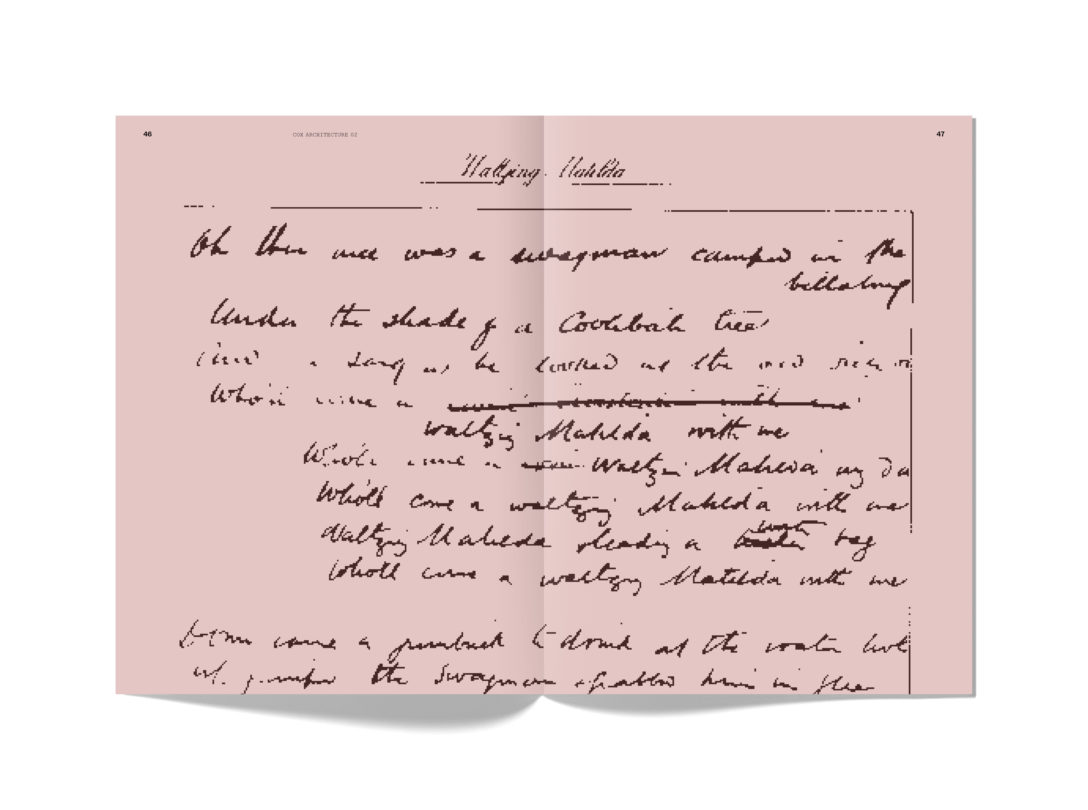 46 COX ARCHITECTURE 02 47
Waltzing Matilda
Oh there once was a swagman camped in the
billabong
Under the shade of a Coolibah tree
And sang as he looked at the old
Who'll come a
waltzing Matilda with me
Who'll come a waltzing Matilda my da
Who'll come a waltzing Matilda with me
Waltzing Matilda leading a water bag
Who'll come a waltzing Matilda with me
Down came a jumbuck to drink at the water hole
up jumped the swagman grabbed him in glee